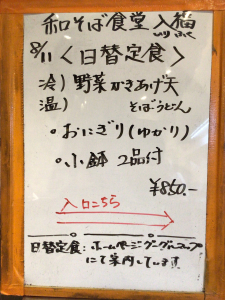 和そば食堂 入福
いり ふく
8/11 〈日替定食〉
冷) 野菜かきあげ天
温) そばうどん
・おにぎり(ゆかり)
・小鉢 2品付
¥850.-
入口こちら
日替定食:ホームページ グーグルマップ
にて案内しています